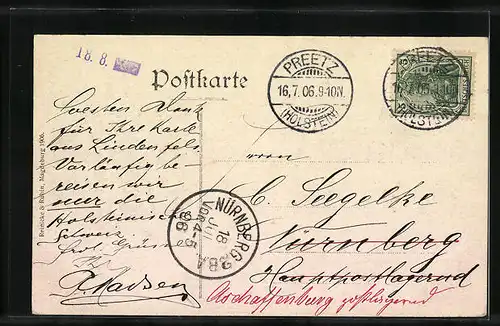 18. 8.
Postkarte
PREETZ
16.7.06.9-10N.
(HOLSTEIN)
PREETZ
(HOLSTEIN)
Reinicke & Rubin, Magdeburg 1906.
Besten Dank
für Ihre Karte
aus Lindenfels.
Vorläufig be-
reisen wir
nur die
Holsteinische
Schweiz.
Frdl. Grüsse
Ihr
Madsen
Herrn
C. Seegelke
Nürnberg
Hauptpostlagernd
Aschaffenburg postlagernd
NÜRNBERG 2 B.P.A.
18 JUL
VOR 4-5
06